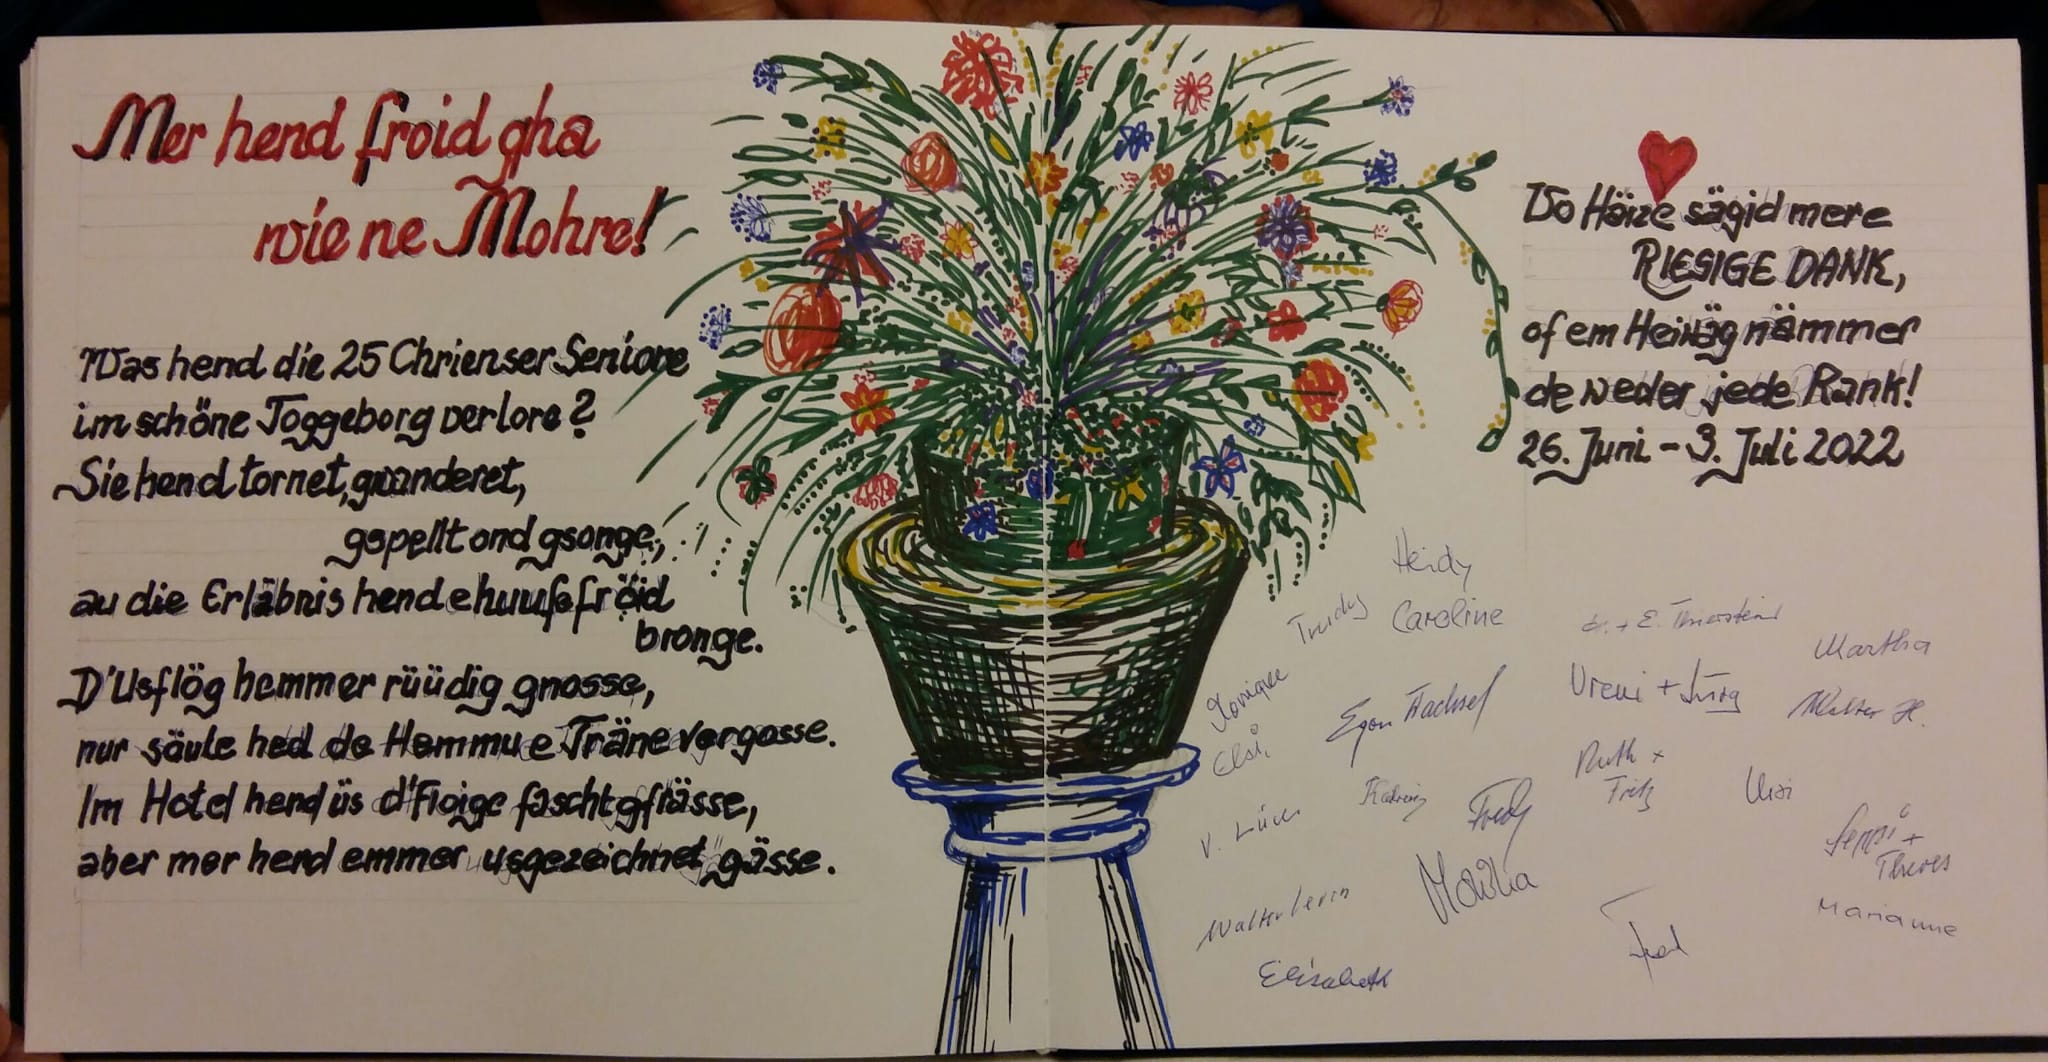 Mer hend froid gha
wie ne Mohre!
Was hend die 25 Chrienser Seniore
im schöne Toggeborg verlore?
Sie hend tornet, gwanderet,
gspellt ond gsonge,
au die Erläbnis hend e huufe fröid
bronge.
D'Usflög hemmer rüüdig gnosse,
nur säute hed de Hemmu e Träne vergosse.
Im Hotel hend üs d'Floige fascht gfrässe,
aber mer hend emmer usgezeichnet gässe.
Vo Härze sägid mere
RIESIGE DANK,
of em Heiwäg nämmer
de weder jede Rank!
26. Juni - 3. Juli 2022
Heidy
Caroline
Martha
Vreni + Jürg
Walter H.
Egon
Elsi
Ruth +
Fritz
Fredy
Seppi +
Monika
Marianne
Elisabeth